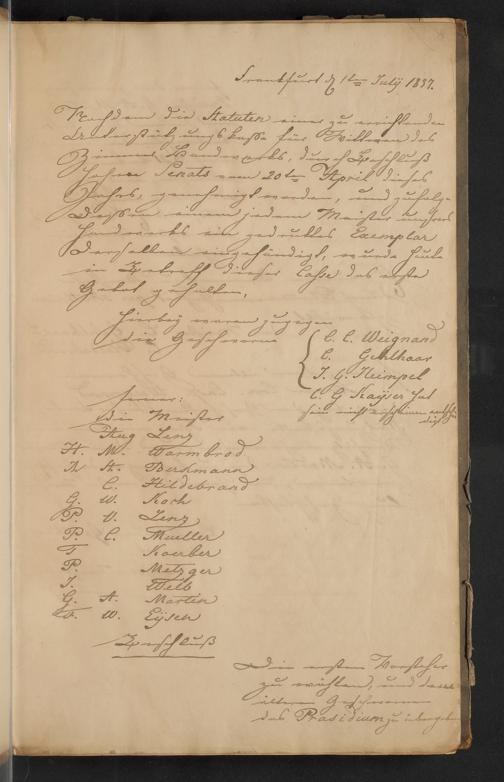 Frankfurt d 1ten July 1837.
Nachdem die Statuten einer zu errichtenden
Unterstützungskasse für Wittwen des
Zimmer Handwerks, durch Beschluß
Hohen Senats vom 20ten April dieses
Jahrs, genehmigt worden, und zufolge
dessen einem jedem Meister unsres
Handwerks ein gedrucktes Exemplar
derselben eingehändigt, wurde heute
in Betreff dieser Casse das erste
Gebot gehalten.
Hierbey waren zugegen
die Geschworne
C. C. Weignand
C. Gehlhaar
J. G. Heimpel
C. G Kayser hat
sein nicht erscheinen entschul
digt
ferner:
die Meister
Aug Lenz
H. M. Warmbrod
A. Berkmann
C. Hildebrand
G. W. Koch
P. V. Lenz
P. C. Mueller
F Koerber
P. Metzger
J. Welb
G. A. Martin
W. Eysen
Beschluß
Die ersten Vorsteher
zu wählen, und dem
ältern Geschwornen
das Präsidium zu übergeben